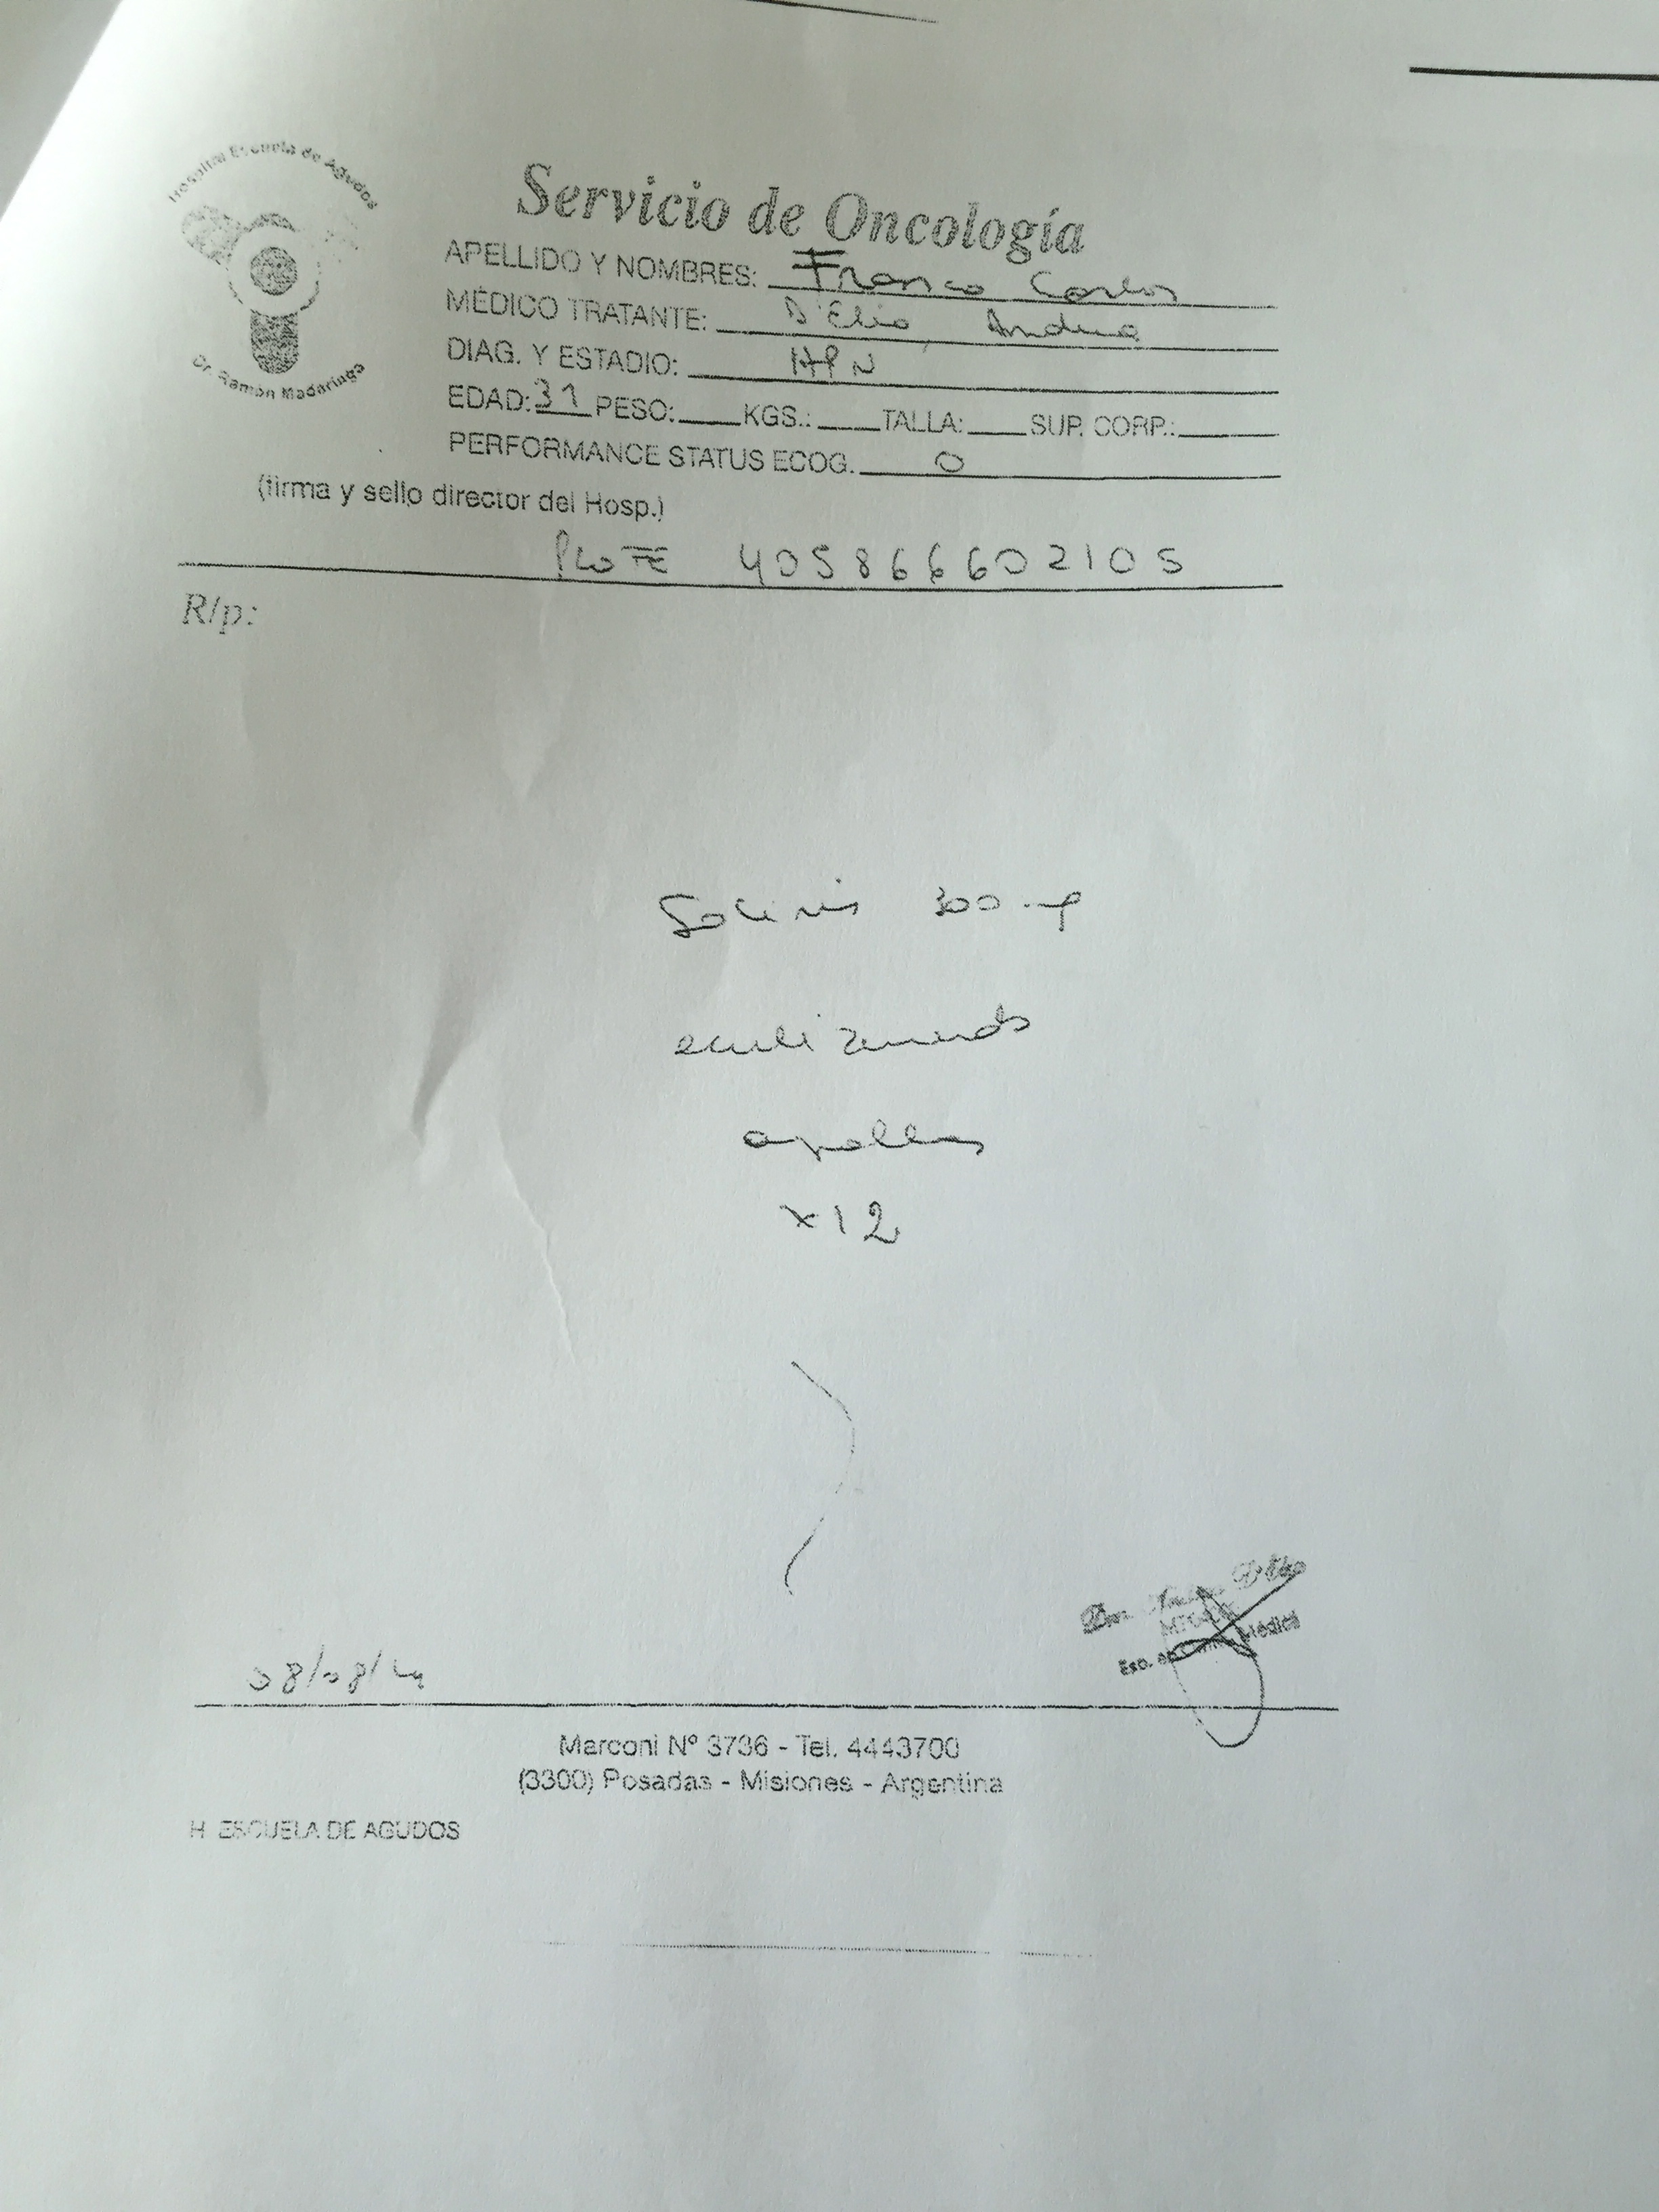 Hospital Escuela de Agudos
Dr. Ramón Madariaga
Servicio de Oncología
APELLIDO Y NOMBRES: Franco Carlos
MÉDICO TRATANTE: D'Elia, Andrea
DIAG. Y ESTADIO: HPN
EDAD: 31 PESO: KGS.: TALLA: SUP. CORP.:
PERFORMANCE STATUS ECOG. 0
(firma y sello director del Hosp.)
PROFE 405866602105
R/p:
Soliris 300 mg
eculizumab
ampollas
x12
08/08/
Esp. en Clínica Médica
Marconi Nº 3736 - Tel. 4443700
(3300) Posadas - Misiones - Argentina
H. ESCUELA DE AGUDOS